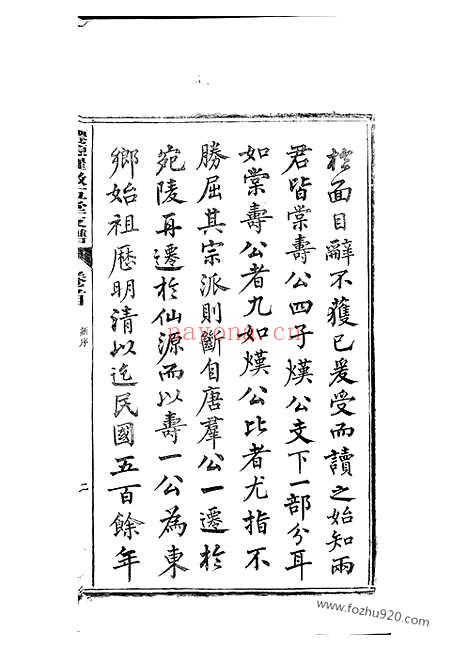 於面目辭不獲已爰受而讀之始知兩
君皆棠壽公四子熯公支下一部分耳
如棠壽公者九如熯公比者尤指不
勝屈其宗派則斷自唐羣公一遷於
宛陵再遷於仙源而以壽一公為東
鄉始祖歷明清以迄民國五百餘年
支譜
卷首
新序
二
nayona.cn
www.fozhu920.com